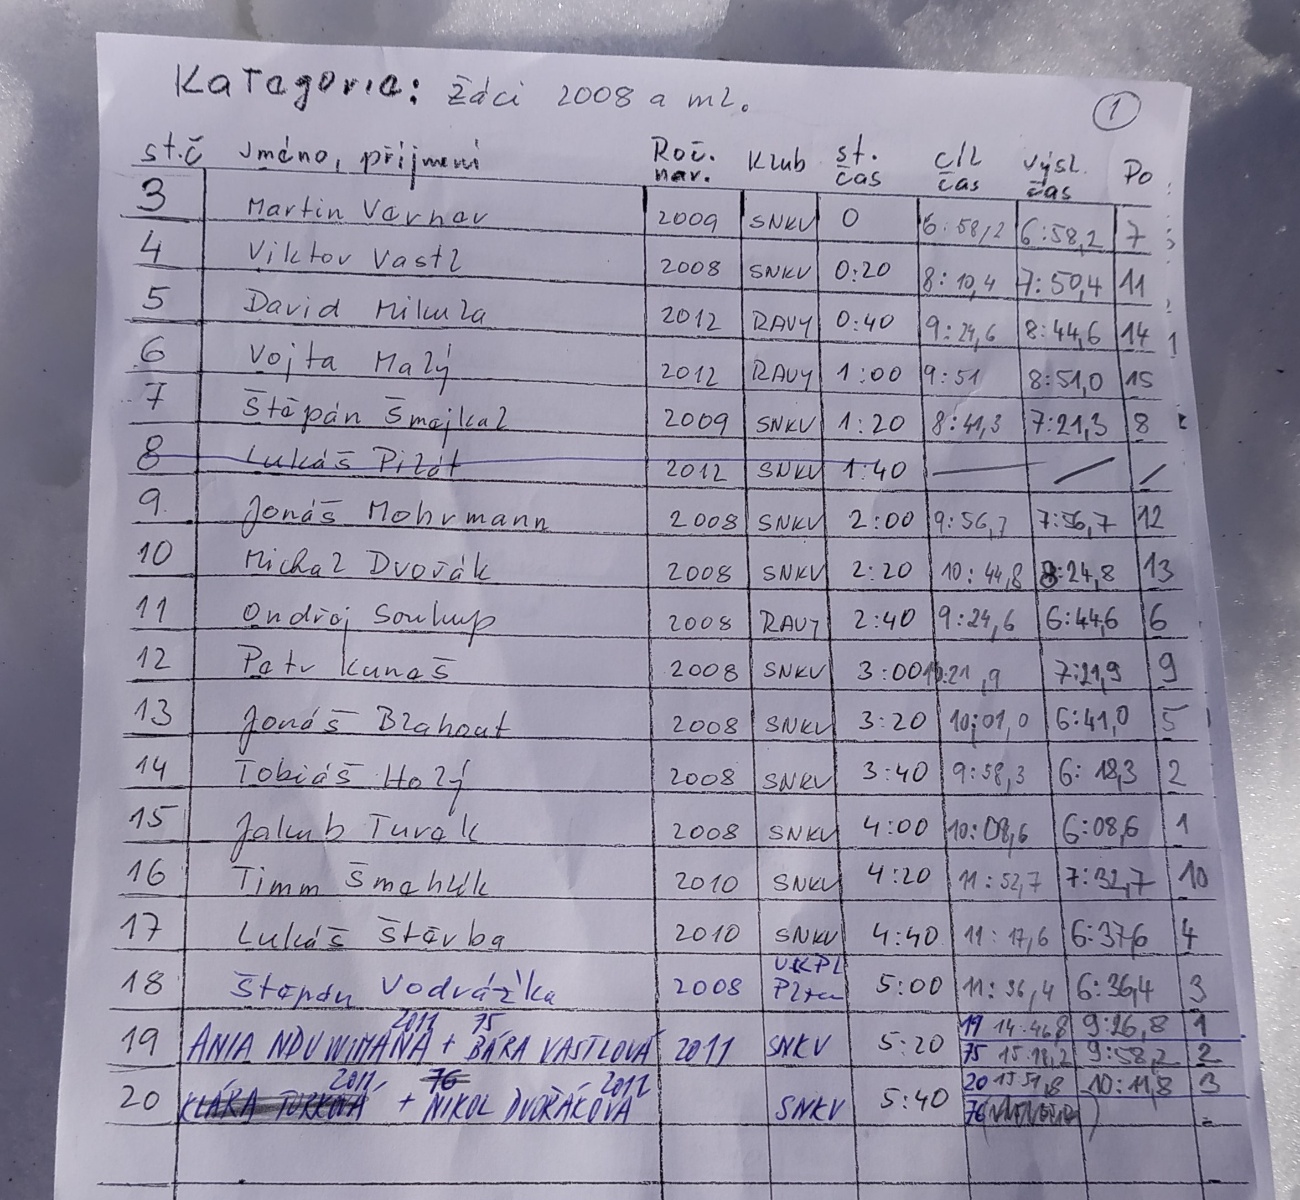 Kategorie: žáci 2008 a ml.
1
st.č Jméno, příjmení Roč. nar. Klub st. čas cíl čas výsl. čas Po
3 Martin Verner 2009 SNKV 0 6:58,2 6:58,2 7
4 Viktor Vastl 2008 SNKV 0:20 8:10,4 7:50,4 11
5 David Mikula 2012 RAVY 0:40 9:24,6 8:44,6 14
6 Vojta Malý 2012 RAVY 1:00 9:51 8:51,0 15
7 Štěpán Šmejkal 2009 SNKV 1:20 8:41,3 7:21,3 8
8 Lukáš Pilát 2012 SNKV 1:40
9 Jonáš Mohrmann 2008 SNKV 2:00 9:56,7 7:56,7 12
10 Michal Dvořák 2008 SNKV 2:20 10:44,8 8:24,8 13
11 Ondřej Soukup 2008 RAVY 2:40 9:24,6 6:44,6 6
12 Petr Kuneš 2008 SNKV 3:00 10:21,9 7:21,9 9
13 Jonáš Blahout 2008 SNKV 3:20 10:01,0 6:41,0 5
14 Tobiáš Holý 2008 SNKV 3:40 9:58,3 6:18,3 2
15 Jakub Turek 2008 SNKV 4:00 10:08,6 6:08,6 1
16 Timm 2010 SNKV 4:20 11:52,7 7:32,7 10
17 Lukáš Štěrba 2010 SNKV 4:40 11:17,6 6:37,6 4
18 Štěpán Vodrážka 2008 Plzen 5:00 11:36,4 6:36,4 3
2011 75 19 14:46,8 9:26,8 1
19 ANIA NDUWIMANA + BÁRA VASTLOVÁ 2011 SNKV 5:20 75 15:18,2 9:58,2 2
2011 76 2012 20 15:51,8 10:11,8 3
20 KLÁRA TURKOVÁ + NIKOL DVOŘÁKOVÁ SNKV 5:40 76 -